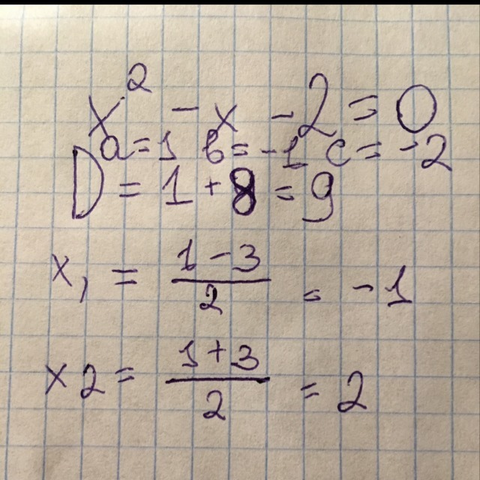 x² - x - 2 = 0
a = 1 b = -1 c = -2
D = 1 + 8 = 9
x₁ = (1 - 3)/2 = -1
x2 = (1 + 3)/2 = 2